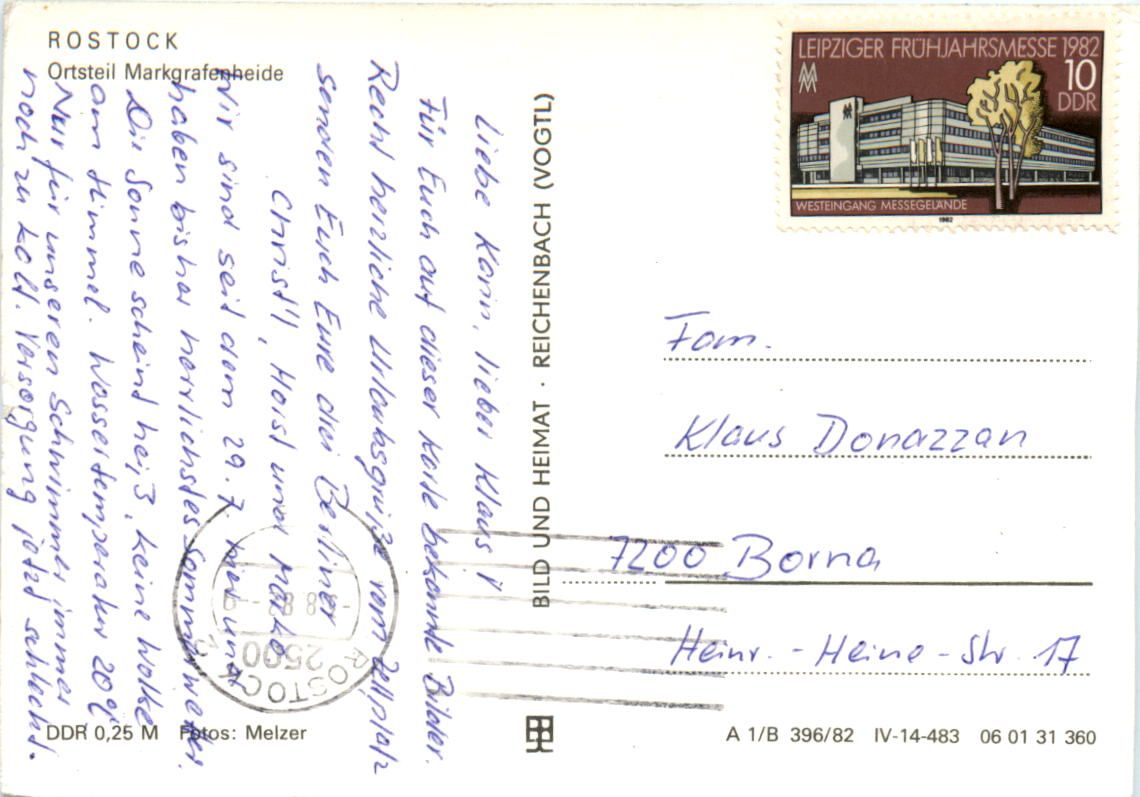 ROSTOCK
Ortsteil Markgrafenheide
LEIPZIGER FRÜHJAHRSMESSE 1982
10
DDR
WESTEINGANG MESSEGELÄNDE
1982
Liebe Karin, lieber Klaus!
Für Euch auf dieser Karte bekannte Bilder.
Recht herzliche Urlaubsgrüße vom Zeltplatz
senden Euch Eure drei Berliner
Christl, Horst und Marko
Wir sind seit dem 29.7. hier und
haben bisher herrlichstes Sommerwetter.
Die Sonne scheint heiß, keine Wolke
am Himmel. Wassertemperatur 20°C
Nur für unseren Schwimmer immer
noch zu kalt. Versorgung jetzt schlecht.
BILD UND HEIMAT · REICHENBACH (VOGTL)
Fam.
Klaus Donazzan
7200 Borna
Heinr.-Heine-Str. 17
2500
ROSTOCK
DDR 0,25 M Fotos: Melzer
A 1/B 396/82 IV-14-483 06 01 31 360